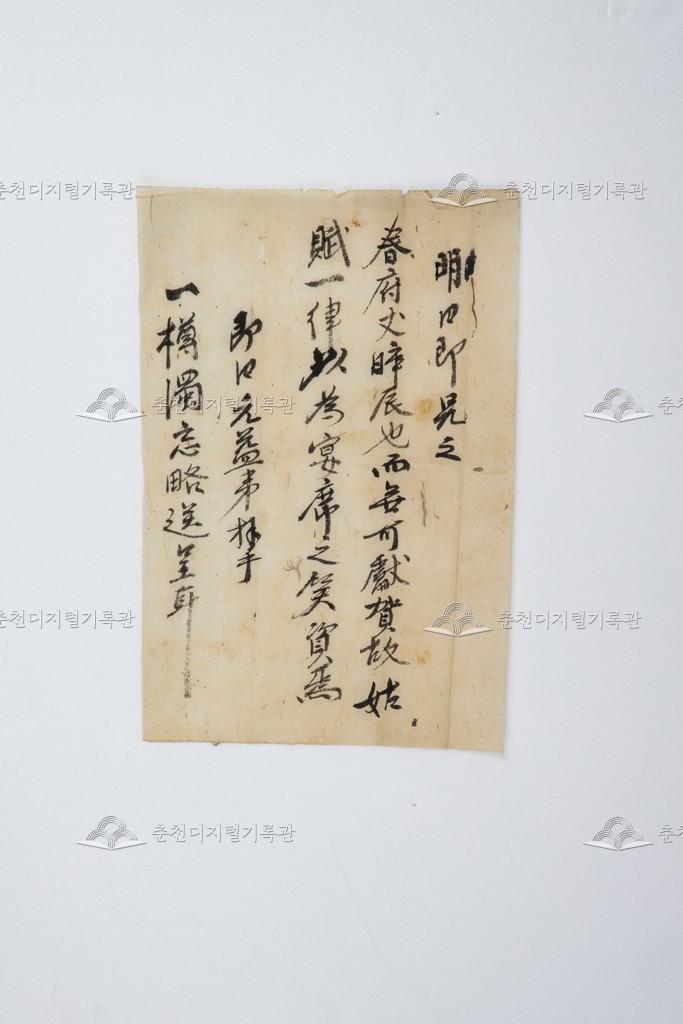 明日即兄之
春府丈晬辰也而無可獻賀故姑
賦一律以為宴席之笑資焉
即日元益弟拜手
一樽濁忘略送呈耳
춘천디지털기록관
춘천디지털기록관
춘천디지털기록관
춘천디지털기록관
춘천디지털기록관
춘천디지털기록관